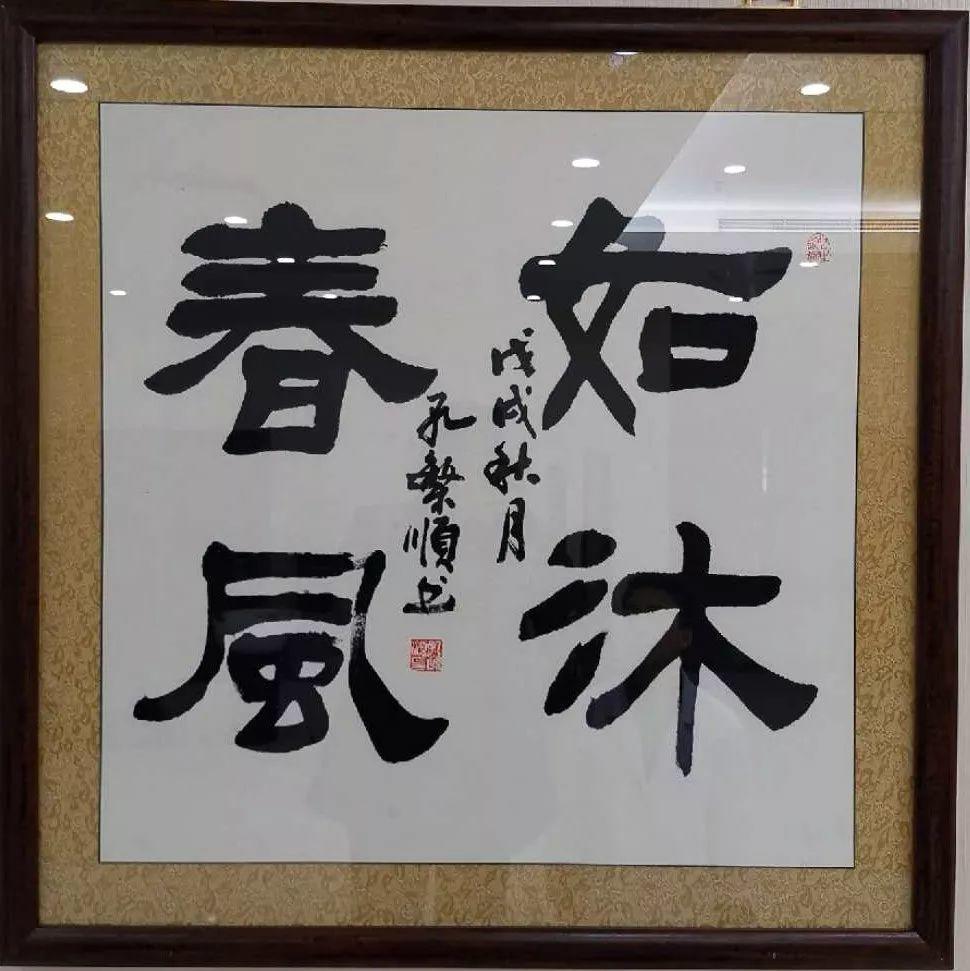 如沐
春風
戊戌秋月
孔繁順书